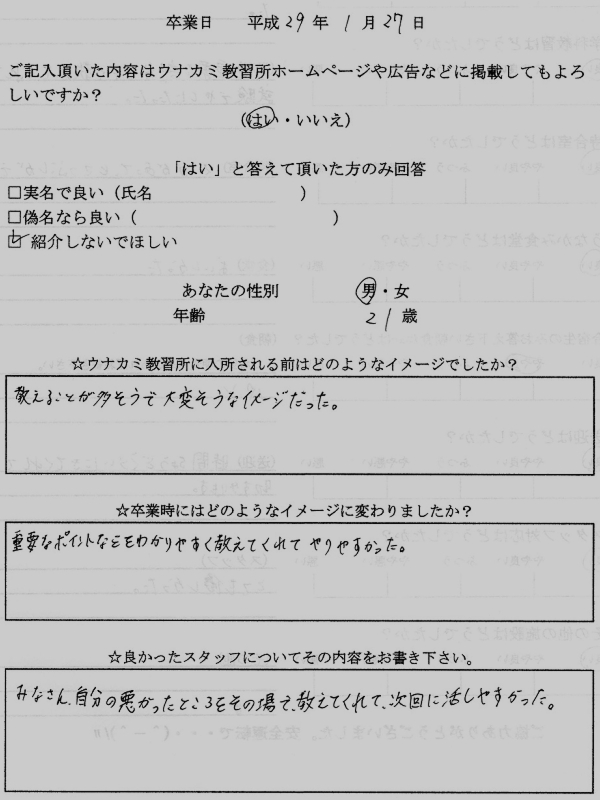 卒業日 平成29年1月27日
ご記入頂いた内容はウナカミ教習所ホームページや広告などに掲載してもよろ
しいですか?
(はい・いいえ)
「はい」と答えて頂いた方のみ回答
□実名で良い(氏名 )
□偽名なら良い( )
☑紹介しないでほしい
あなたの性別 男・女
年齢 21歳
☆ウナカミ教習所に入所される前はどのようなイメージでしたか?
教えることが多そうで大変そうなイメージだった。
☆卒業時にはどのようなイメージに変わりましたか?
重要なポイントなどをわかりやすく教えてくれてやりやすかった。
☆良かったスタッフについてその内容をお書き下さい。
みなさん、自分の悪かったところをその場で、教えてくれて、次回に活しやすかった。